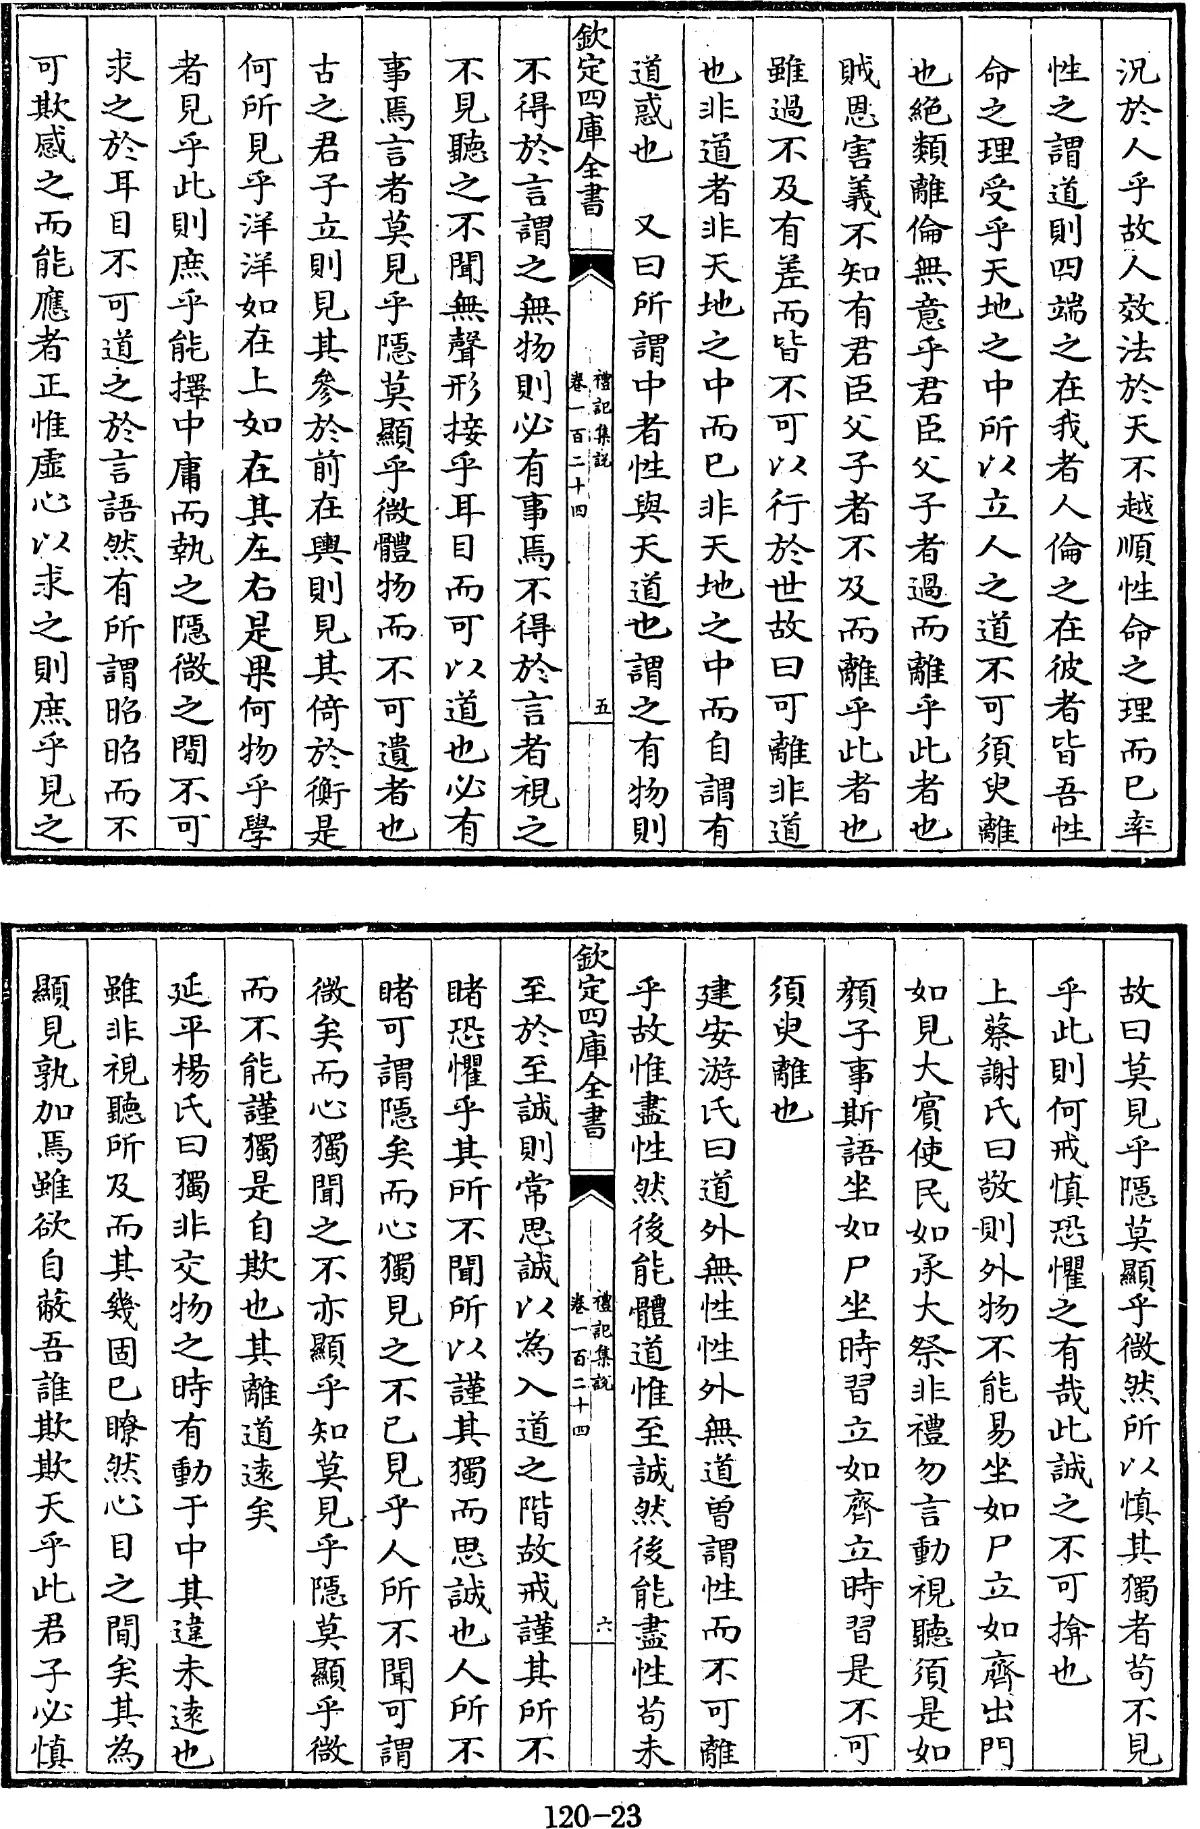 況於人乎故人效法於天不越順性命之理而已率
性之謂道則四端之在我者人倫之在彼者皆吾性
命之理受乎天地之中所以立人之道不可須臾離
也絶類離倫無意乎君臣父子者過而離乎此者也
賊恩害義不知有君臣父子者不及而離乎此者也
雖過不及有差而皆不可以行於世故曰可離非道
也非道者非天地之中而已非天地之中而自謂有
道惑也　又曰所謂中者性與天道也謂之有物則
欽定四庫全書
禮記集説
卷一百二十四
五
不得於言謂之無物則必有事焉不得於言者視之
不見聽之不聞無聲形接乎耳目而可以道也必有
事焉言者莫見乎隱莫顯乎微體物而不可遺者也
古之君子立則見其參於前在輿則見其倚於衡是
何所見乎洋洋如在上如在其左右是果何物乎學
者見乎此則庶乎能擇中庸而執之隱微之間不可
求之於耳目不可道之於言語然有所謂昭昭而不
可欺感之而能應者正惟虚心以求之則庶乎見之
故曰莫見乎隱莫顯乎微然所以慎其獨者苟不見
乎此則何戒慎恐懼之有哉此誠之不可揜也
上蔡謝氏曰敬則外物不能易坐如尸立如齊出門
如見大賓使民如承大祭非禮勿言動視聽須是如
顏子事斯語坐如尸坐時習立如齊立時習是不可
須臾離也
建安游氏曰道外無性性外無道曽謂性而不可離
乎故惟盡性然後能體道惟至誠然後能盡性苟未
欽定四庫全書
禮記集説
卷一百二十四
六
至於至誠則常思誠以為入道之階故戒謹其所不
睹恐懼乎其所不聞所以謹其獨而思誠也人所不
睹可謂隱矣而心獨見之不已見乎人所不聞可謂
微矣而心獨聞之不亦顯乎知莫見乎隱莫顯乎微
而不能謹獨是自欺也其離道逺矣
延平楊氏曰獨非交物之時有動于中其違未逺也
雖非視聽所及而其幾固已瞭然心目之間矣其為
顯見孰加焉雖欲自蔽吾誰欺欺天乎此君子必慎
120-23